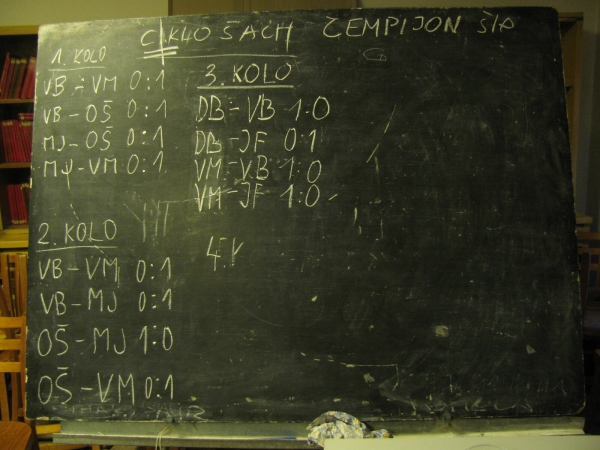 CYKLOŠACH ČEMPIJON ŠIP
1. KOLO
VB - VM 0:1
VB - OŠ 0:1
MJ - OŠ 0:1
MJ - VM 0:1
2. KOLO
VB - VM 0:1
VB - MJ 0:1
OŠ - MJ 1:0
OŠ - VM 0:1
3. KOLO
DB - VB 1:0
DB - JF 0:1
VM - VB 1:0
VM - JF 1:0